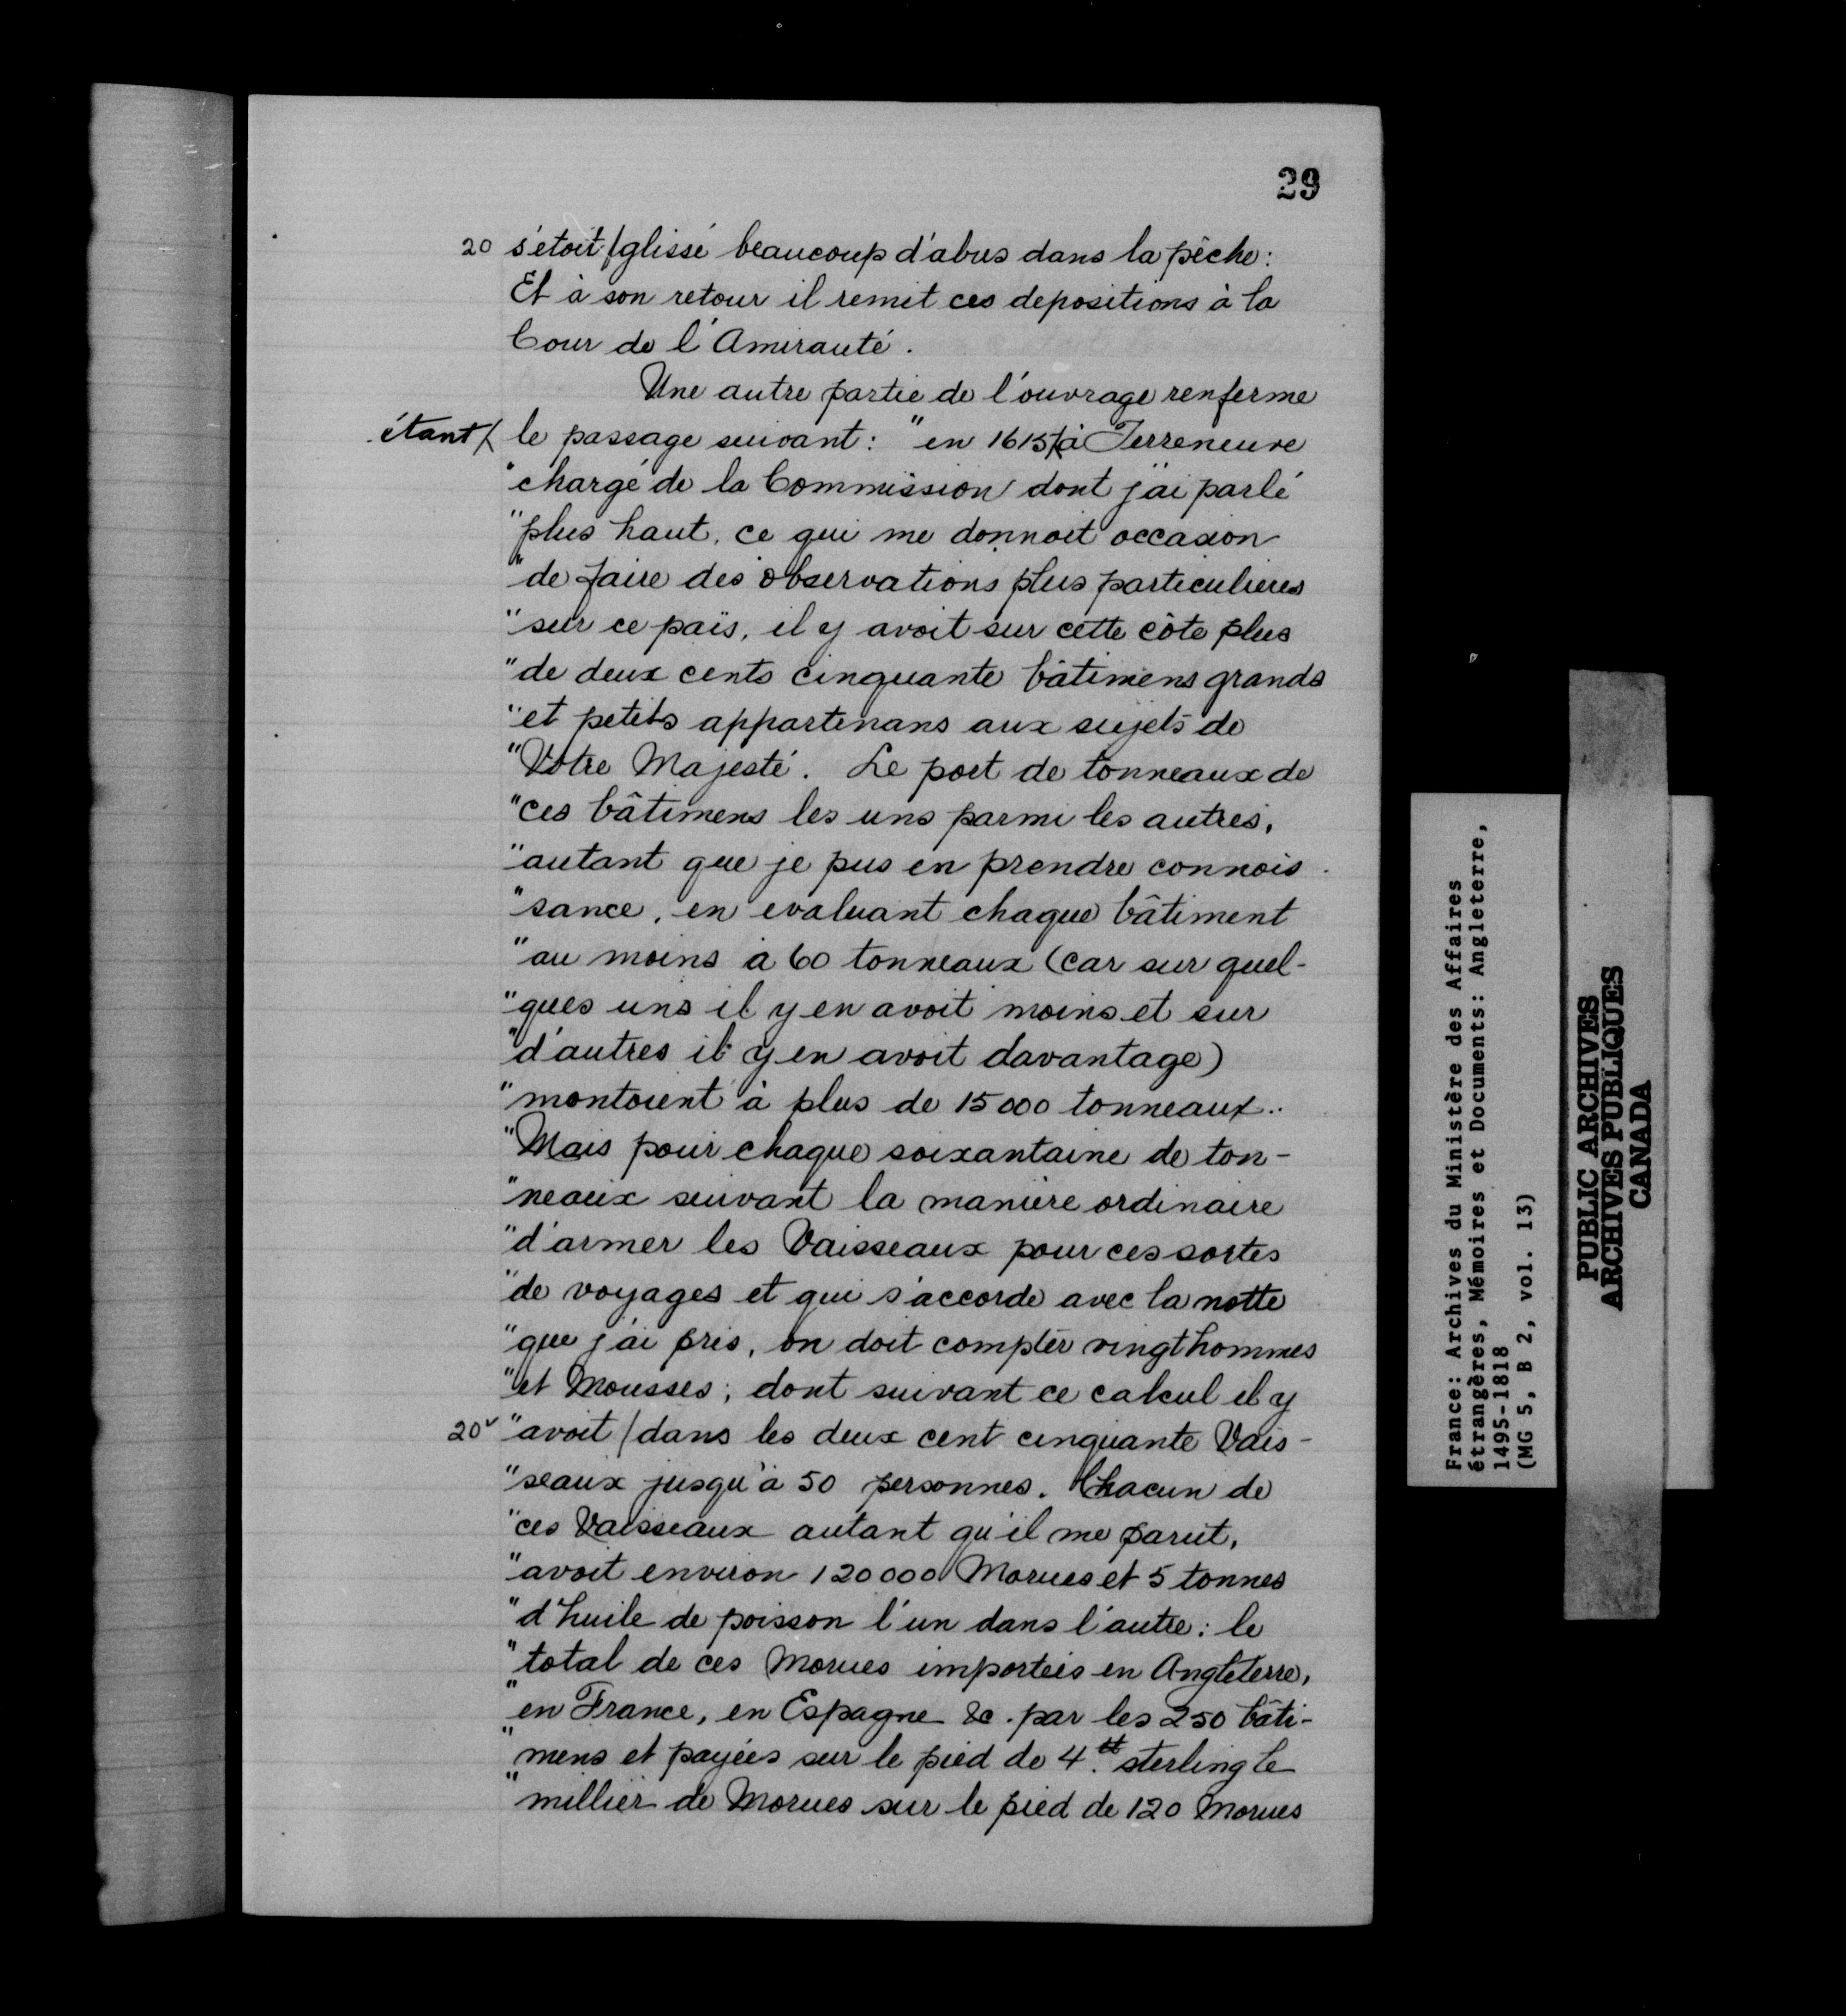 29
20 s'étoit/glissé beaucoup d'abus dans la pêche:
Et à son retour il remit ces depositions à la
Cour de l'Amirauté.
Une autre partie de l'ouvrage renferme
étant/ le passage suivant: "en 1615/à Terreneuve
"chargé de la Commission dont j'ai parlé
"plus haut, ce qui me donnoit occasion
"de faire des observations plus particulieres
"sur ce païs, il y avoit sur cette côte plus
"de deux cents cinquante bâtimens grands
"et petits appartenans aux sujets de
"Votre Majesté. Le port de tonneaux de
"ces bâtimens les uns parmi les autres,
"autant que je pus en prendre connois-
"sance, en evaluant chaque bâtiment
"au moins à 60 tonneaux (car sur quel-
"ques uns il y en avoit moins et sur
"d'autres il y en avoit davantage)
"montoient à plus de 15000 tonneaux..
"Mais pour chaque soixantaine de ton-
"neaux suivant la manière ordinaire
"d'armer les Vaisseaux pour ces sortes
"de voyages et qui s'accorde avec la notte
"que j'ai pris, on doit compter vingt hommes
"et Mousses; dont suivant ce calcul il y
20v "avoit/dans les deux cent cinquante Vais-
"seaux jusqu'à 50 personnes. Chacun de
"ces Vaisseaux autant qu'il me parut,
"avoit environ 120000 Morues et 5 tonnes
"d'huile de poisson l'un dans l'autre: le
"total de ces Morues importées en Angleterre,
"en France, en Espagne &c. par les 250 bâti-
"mens et payées sur le pied de 4.tt sterling le
"millier de Morues sur le pied de 120 Morues
France: Archives du Ministère des Affaires
étrangères, Mémoires et Documents: Angleterre,
1495-1818
(MG 5, B 2, vol. 13)
PUBLIC ARCHIVES
ARCHIVES PUBLIQUES
CANADA